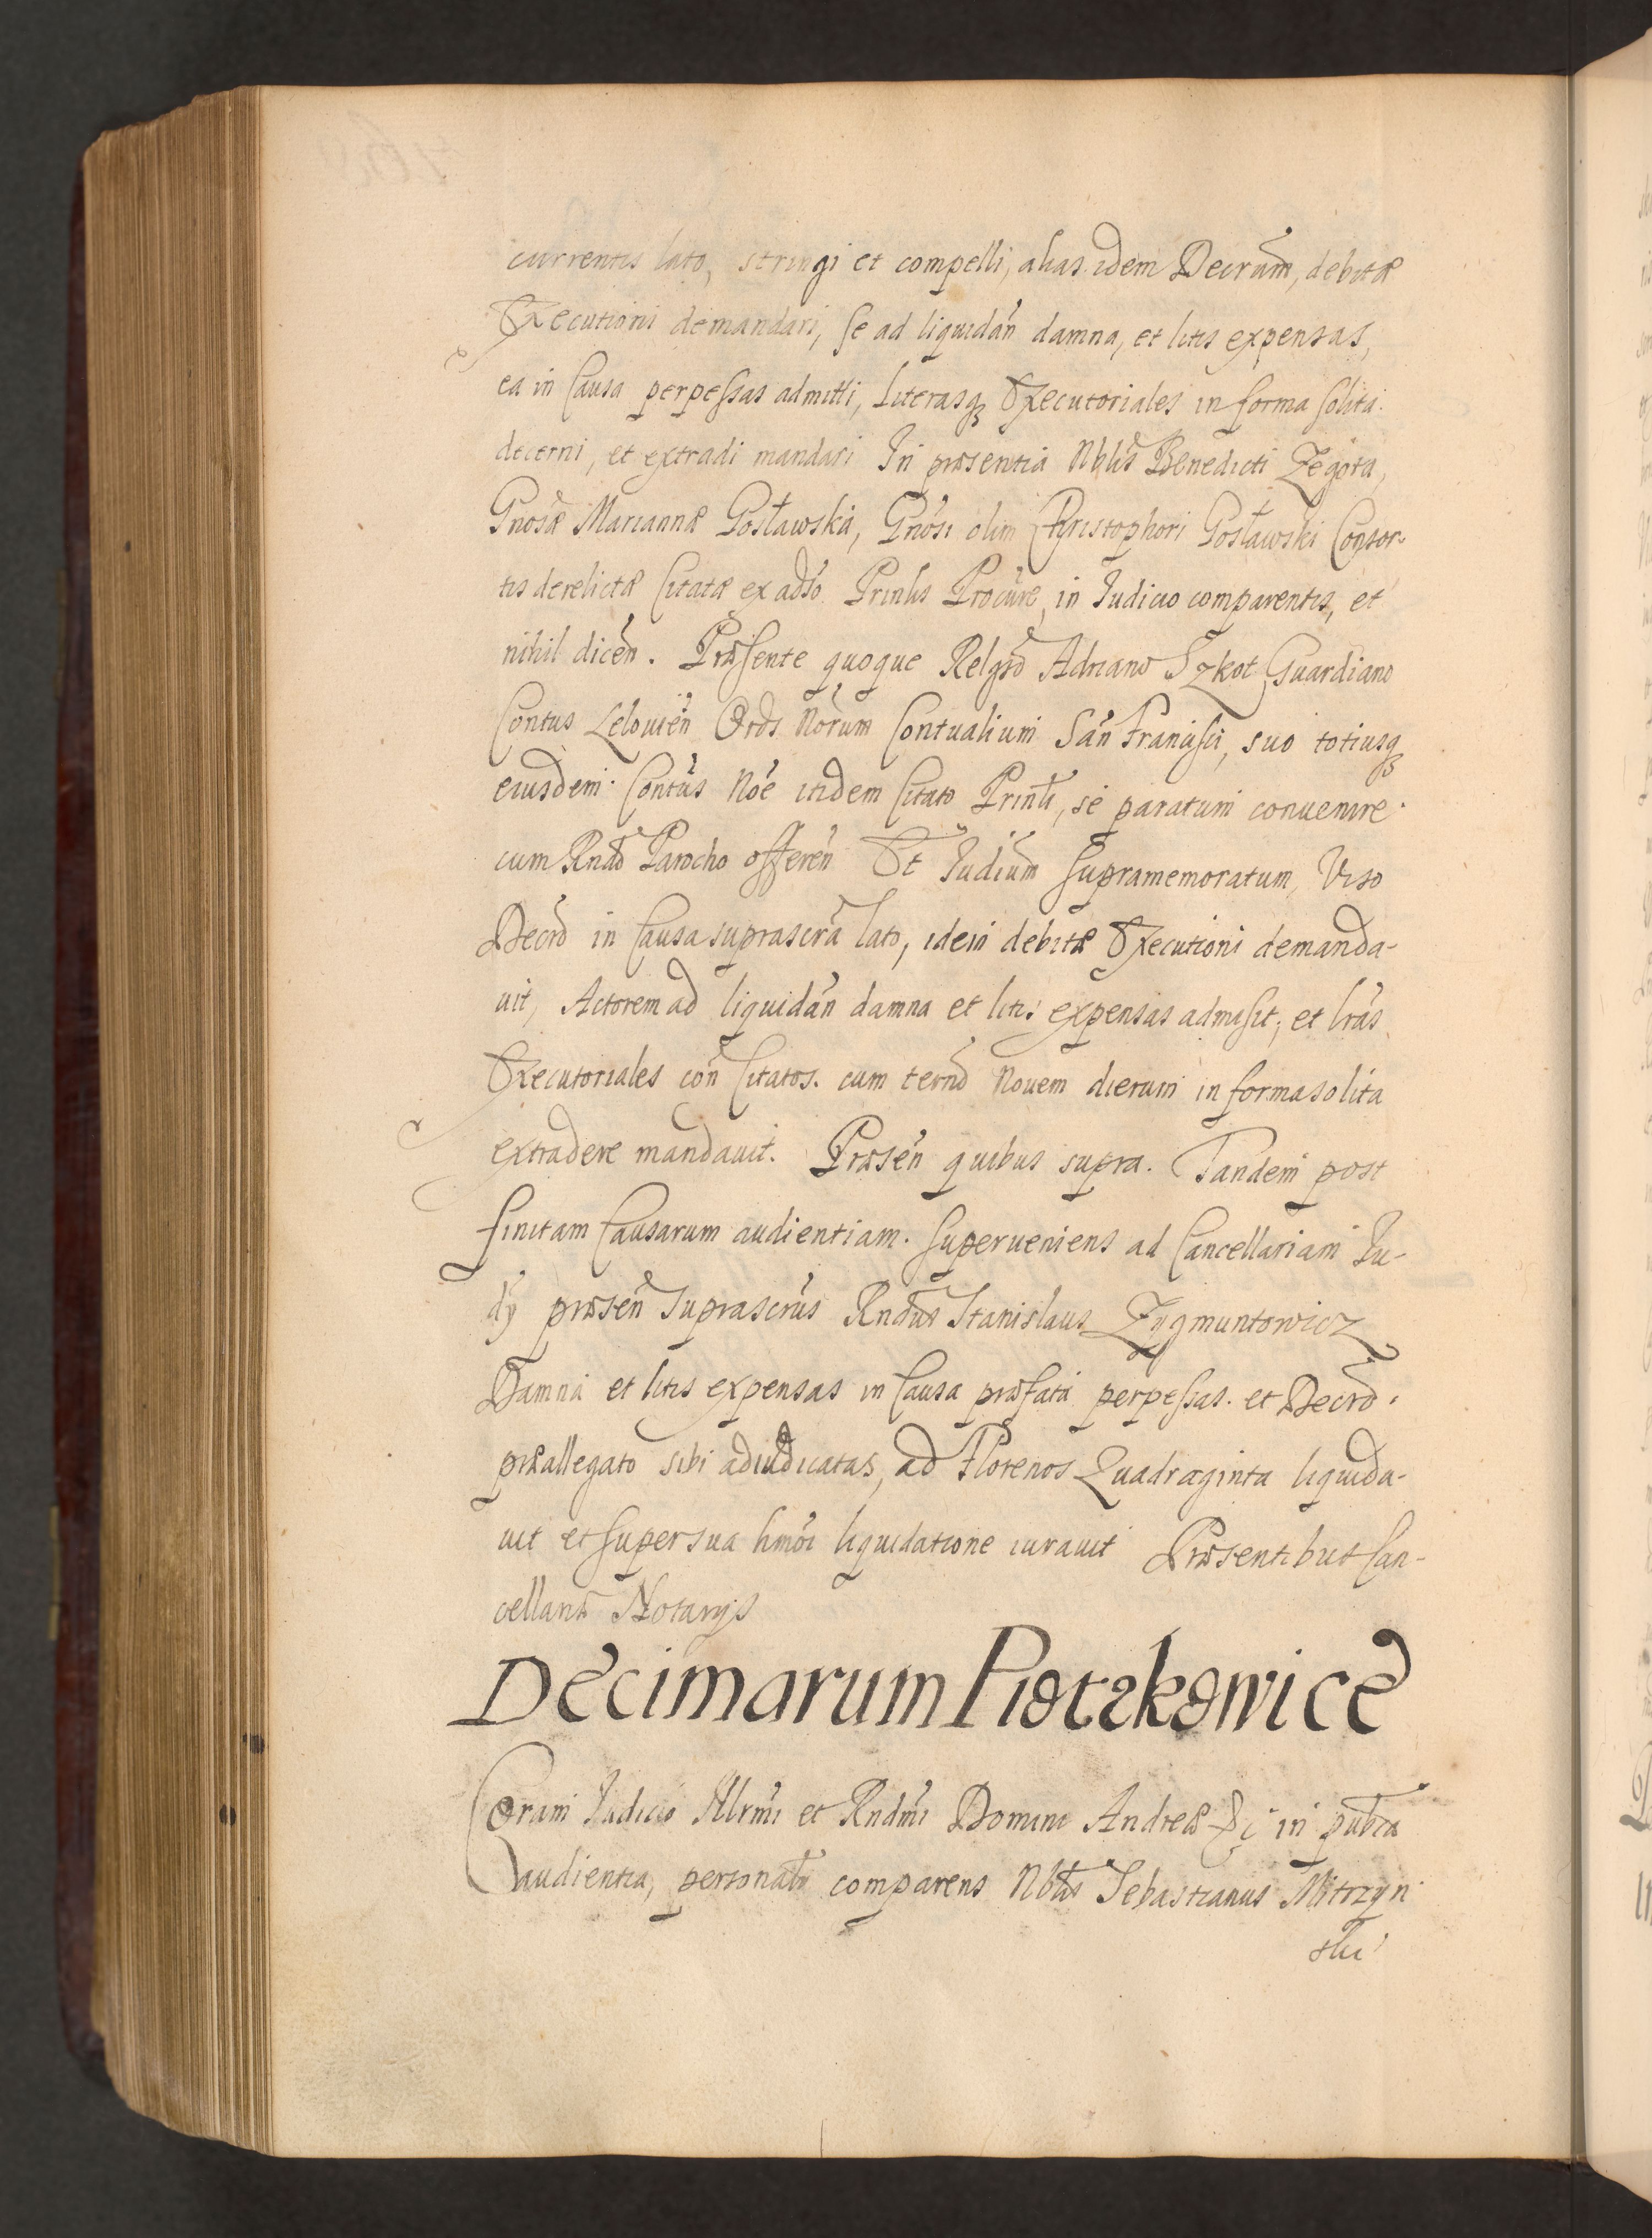 currentis lato, stringi et compelli, alias idem Decrum, debitæ
Executioni demandari, se ad liquidan damna, et litis expensas,
ea in Causa perpessas admitti, literasq Executoriales in forma solita
decerni, et extradi mandari In præsentia Nblis Benedicti Zegota,
Gnosæ Mariannæ Gosławska, Gnosi olim Christophori Gosławski Consor-
tis derelictæ Citatæ ex adso Prinlis Procure, in Iudicio comparentis, et
nihil dicen. Præsente quoque Relgso Adriano Szkot Guardiano
Contus Lelouien Ords Norum Contualium San Francisci, suo totiusq
eiusdem Contus Noe itidem Citato Prinli, se paratum conuenire
cum Rndo Parocho offeren Et Iudium supramemoratum, Viso
Decro in Causa suprascra lato, idem debitæ Executioni demanda-
uit, Actorem ad liquidan damna et litis expensas admisit, et lras
Executoriales con Citatos. cum termo Nouem dierum in forma solita
extradere mandauit. Præsen quibus supra. Tandem post
finitam Causarum audientiam. superueniens ad Cancellariam Iu-
dij præsen suprascrus Rndus Stanislaus Zygmuntowicz
Damna et litis expensas in Causa præfata perpessas. et Decro
præallegato sibi adiudicatas, ad Florenos Quadraginta liquida-
uit et super sua hmoi liquidatione iurauit Præsentibus Can-
cellariæ Notarijs
Decimarum Piotrkowice
Coram Iudicio Illrmi et Rndmi Domini Andreæ &c in publca
audientia, personalr comparens Nblis Sebastianus Mitrzyn
ski